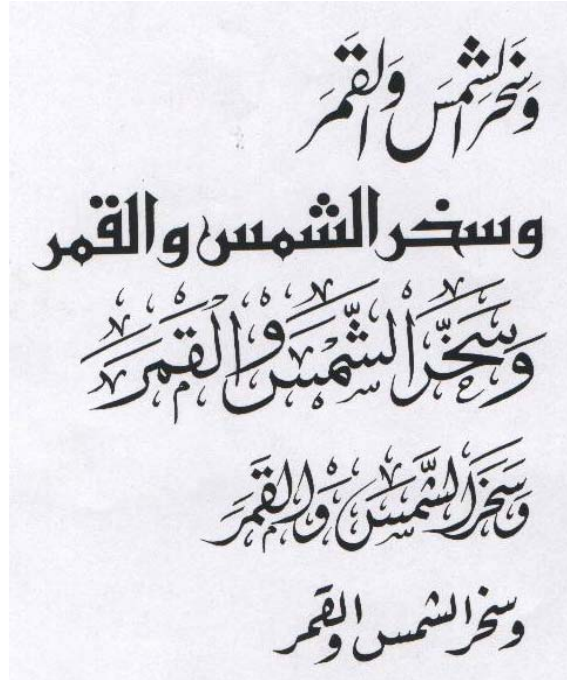 وسخر الشمس والقمر
وسخر الشمس والقمر
وَسَخَّرَ الشَّمْسَ وَالْقَمَرَ
وَسَخَرَ الشَّمْسَ وَالْقَمَرَ
وسخر الشمس والقمر